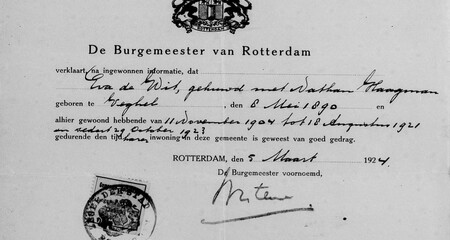 ROTTERDAM
De Burgemeester van Rotterdam
verklaart, na ingewonnen informatie, dat
Eva de Wit, gehuwd met Nathan Haagman
geboren te Veghel, den 8 Mei 1890 en
alhier gewoond hebbende van 11 November 1904 tot 18 Augustus 1921
en sedert 29 October 1923
gedurende den tijd harer inwoning in deze gemeente is geweest van goed gedrag.
ROTTERDAM, den 5 Maart 1924
De Burgemeester voornoemd,